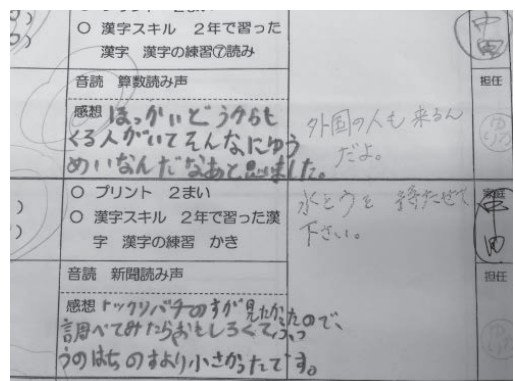 ○ プリント 2まい
○ 漢字スキル 2年で習った
漢字 漢字の練習⑦読み
音読 算数読み声
感想 ほっかいどうからも
くる人がいてそんなにゆう
めいなんだなあと思いました。
外国の人も来るん
だよ。
中
担任
○ プリント 2まい
○ 漢字スキル 2年で習った漢
字 漢字の練習 かき
水とうを 持たせて
下さい。
家庭
中
田
音読 新聞読み声
担任
感想 トックリバチのすが見たかったので、
調べてみたらおもしろくてふつ
うのはちのすより小さかったです。